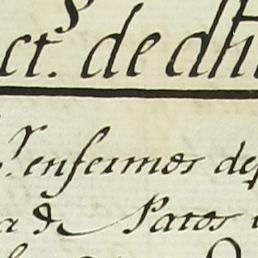 ct. de dh
enfermos de
a de Patos